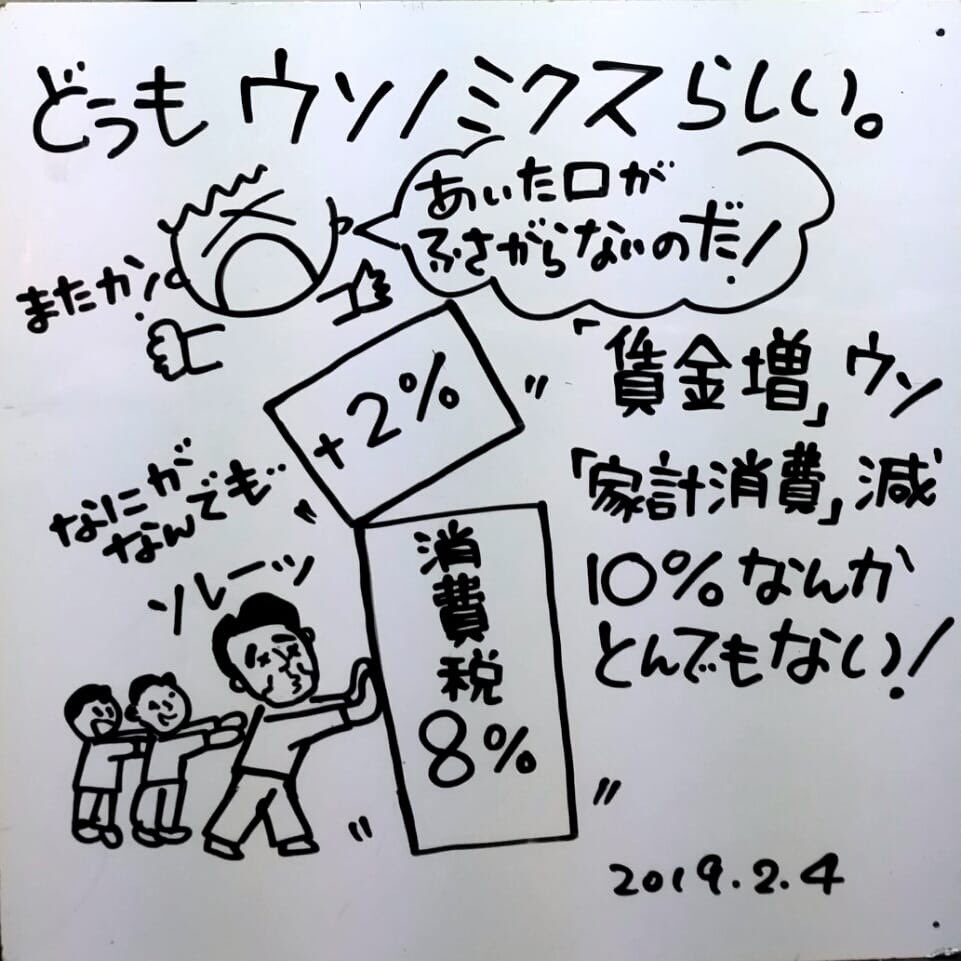 どうもウソノミクスらしい。
あいた口が
ふさがらないのだ!
またか!
「賃金増」ウソ
「家計消費」減
10%なんか
とんでもない!
+2%
なにが
なんでも…
ソレーッ
消費税
8%
2019.2.4